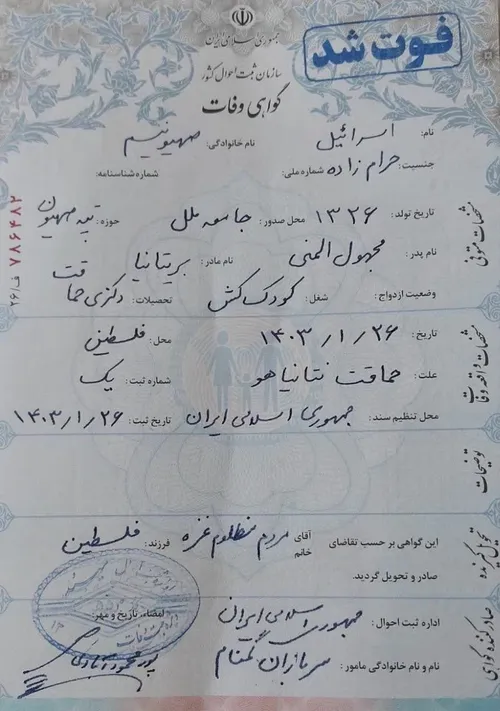 جمهوری اسلامی ایران
فوت شد
سازمان ثبت احوال کشور
گواهی وفات
نام: اسرائیل نام خانوادگی: صهیونیسم
جنسیت: حرام زاده شماره ملی: شماره شناسنامه:
مشخصات متوفی
تاریخ تولد: ۱۳۲۶ محل صدور: جامعه ملل حوزه: تپه صهیون
نام پدر: مجهول المنی نام مادر: بریتانیا
وضعیت ازدواج: شغل: کودک کش تحصیلات: دکتری حماقت
ف/۲۶ ۷۸۶۴۸۲
مشخصات واقعه وفات
تاریخ: ۱۴۰۳/۱/۲۶ محل: فلسطین
علت: حماقت نتانیاهو شماره ثبت: یک
محل تنظیم سند: جمهوری اسلامی ایران تاریخ ثبت: ۱۴۰۳/۱/۲۶
توضیحات
تحویل گیرنده
این گواهی بر حسب تقاضای آقای خانم مردم مظلوم غزه فرزند: فلسطین
صادر و تحویل گردید.
صادر کننده گواهی
اداره ثبت احوال: جمهوری اسلامی ایران امضاء، تاریخ و مهر:
نام و نام خانوادگی مامور: سربازان گمنام